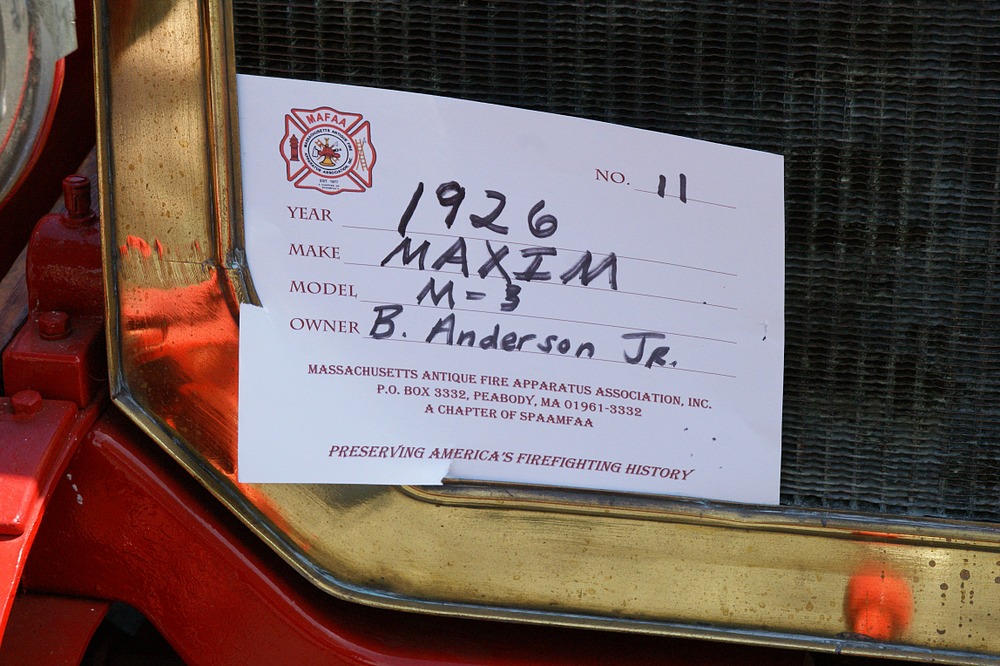 MAFAA
MASSACHUSETTS ANTIQUE FIRE
APPARATUS ASSOCIATION
NO. 11
YEAR 1926
MAKE MAXIM
MODEL M-3
OWNER B. Anderson Jr.
MASSACHUSETTS ANTIQUE FIRE APPARATUS ASSOCIATION, INC.
P.O. BOX 3332, PEABODY, MA 01961-3332
A CHAPTER OF SPAAMFAA
PRESERVING AMERICA'S FIREFIGHTING HISTORY